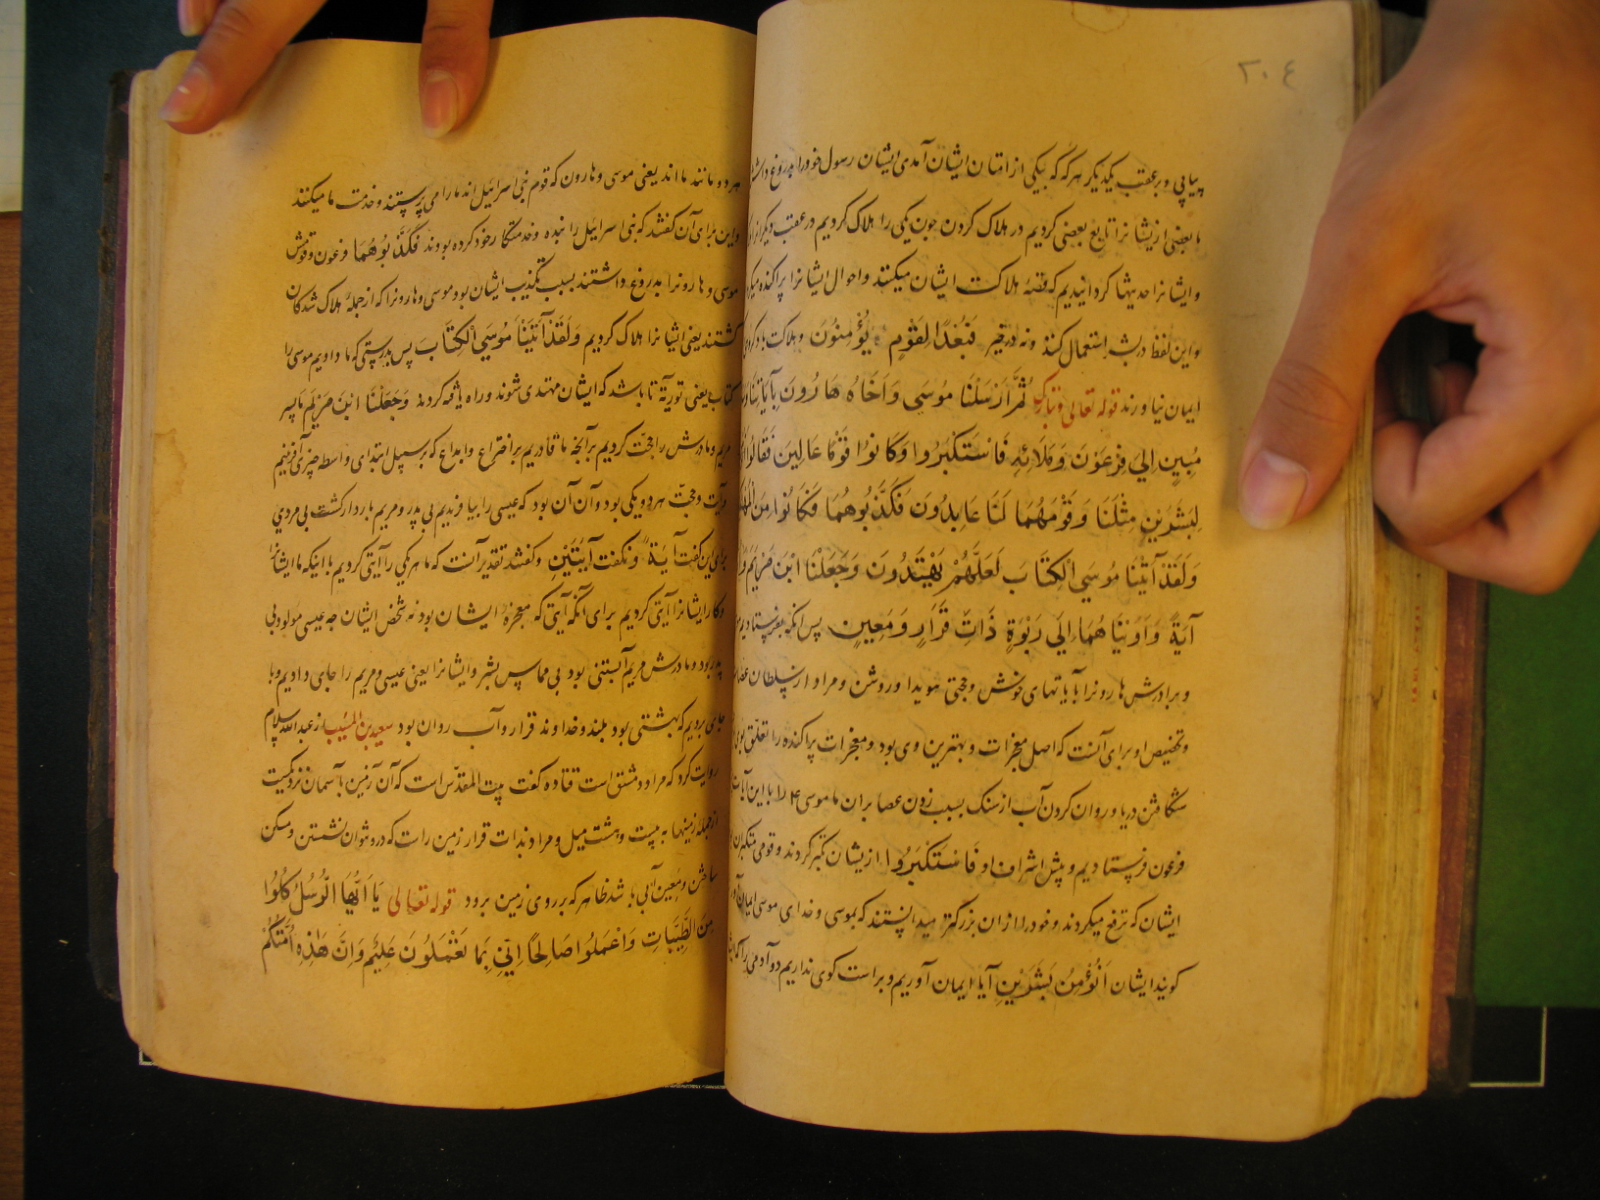 ٢٠٤
پیاپی و بر عقب یکدیگر هرکه که بیکی از امتان ایشان آمدی ایشان رسول خود را بدروغ داشتند
ما بعضی ازیشانرا تابع بعضی کردیم در هلاک کردن چون یکی را هلاک کردیم در عقب دیگرانرا
و ایشانرا حدیثها کردانیدیم که قصهٔ هلاکت ایشان میکنند و احوال ایشانرا پراکنده
و این لفظ در شر استعمال کنند و نه در خیر فَبُعْدًا لِقَوْمٍ لا یُؤْمِنُونَ و هلاکت باد
ایمان نیاورند قوله تعالی وتبارک ثُمَّ أَرْسَلْنَا مُوسَی وَأَخَاهُ هَارُونَ بِآیَاتِنَا
مُبِینٍ إِلَی فِرْعَوْنَ وَمَلَائِهِ فَاسْتَکْبَرُوا وَکَانُوا قَوْمًا عَالِینَ فَقَالُوا
لِبَشَرَیْنِ مِثْلِنَا وَقَوْمُهُمَا لَنَا عَابِدُونَ فَکَذَّبُوهُمَا فَکَانُوا مِنَ
وَلَقَدْ آتَیْنَا مُوسَی الْکِتَابَ لَعَلَّهُمْ یَهْتَدُونَ وَجَعَلْنَا ابْنَ مَرْیَمَ
آیَةً وَآوَیْنَاهُمَا إِلَی رَبْوَةٍ ذَاتِ قَرَارٍ وَمَعِینٍ پس آنکه بفرستادیم
و برادرش هارونرا بآیاتهای خویش و حجتی هویدا و روشن و مراد از سلطان عصا
و تخصیص او برای آنست که اصل معجزات و بهترین وی بود و معجزات پراکنده را تعلق بوی
شکافتن دریا و روان کردن آب از سنک بسبب زدن عصا بران ما موسی را با این آیات
فرعون فرستادیم و پیش اشراف او فَاسْتَکْبَرُوا ازیشان تکبر کردند و قومی متکبران
ایشان که ترفع میکردند و خود را ازان بزرکتر میدانستند که بموسی و خدای موسی ایمان
کویند ایشان أَنُؤْمِنُ بَشَرَیْنِ آیا ایمان آوریم و براست کوی نداریم دو آدمی را
هر دو مانند مااند یعنی موسی و هارون که قوم بنی اسرائیل اند ما را می پرستند و خدمت ما میکنند
و این برای آن کفتند که بنی اسرائیل را بنده و خدمتکار خود کرده بودند فَکَذَّبُوهُمَا فرعون و قومش
موسی و هارونرا بدروغ داشتند بسبب تکذیب ایشان بود موسی و هارونرا که از جملهٔ هلاک شدکان
کشتند یعنی ایشانرا هلاک کردیم وَلَقَدْ آتَیْنَا مُوسَی الْکِتَابَ پس بدرستی که ما دادیم موسی را
کتاب یعنی توریة تا باشد که ایشان مهتدی شوند و راه یافته کردند وَجَعَلْنَا ابْنَ مَرْیَمَ ما پسر
مریم و مادرش را حجت کردیم برآنچه ما قادریم بر اختراع و ابداع که بر سبیل ابتدا بی واسطه چیزی آفرینیم
و آیت و حجت هر دو یکی بود و آن آن بود که عیسی را بیافریدیم بی پدر و مریم باردار کشت بی مردی
برای این کفت آیَةً و نکفت آیَتَیْنِ و کفتند تقدیر آنست که ما هر یکی را آیتی کردیم با اینکه ما ایشانرا
و کار ایشانرا آیتی کردیم برای آنکه آیتی که معجزهٔ ایشان بود نه شخص ایشان چه عیسی مولود بی
پدر بود و مادرش مریم آبستنی بود بی مماس بشر و ایشانرا یعنی عیسی و مریم را جای دادیم و با
جایی بردیم که بهشتی بود بلند و خداوند قرار و آب روان بود سعید بن المسیب از عبد الله سلام
روایت کرد که مراد دمشق است قتاده کفت بیت المقدس است که آن زمین بآسمان نزدیکیست
از جمله زمینها به بیست و هشت میل و مراد بذات قرار زمین راست که درو توان نشستن و مسکن
ساختن و معین آبی باشد ظاهر که بر روی زمین برود قوله تعالی یَا أَیُّهَا الرُّسُلُ کُلُوا
مِنَ الطَّیِّبَاتِ وَاعْمَلُوا صَالِحًا إِنِّی بِمَا تَعْمَلُونَ عَلِیمٌ وَإِنَّ هَذِهِ أُمَّتُکُمْ